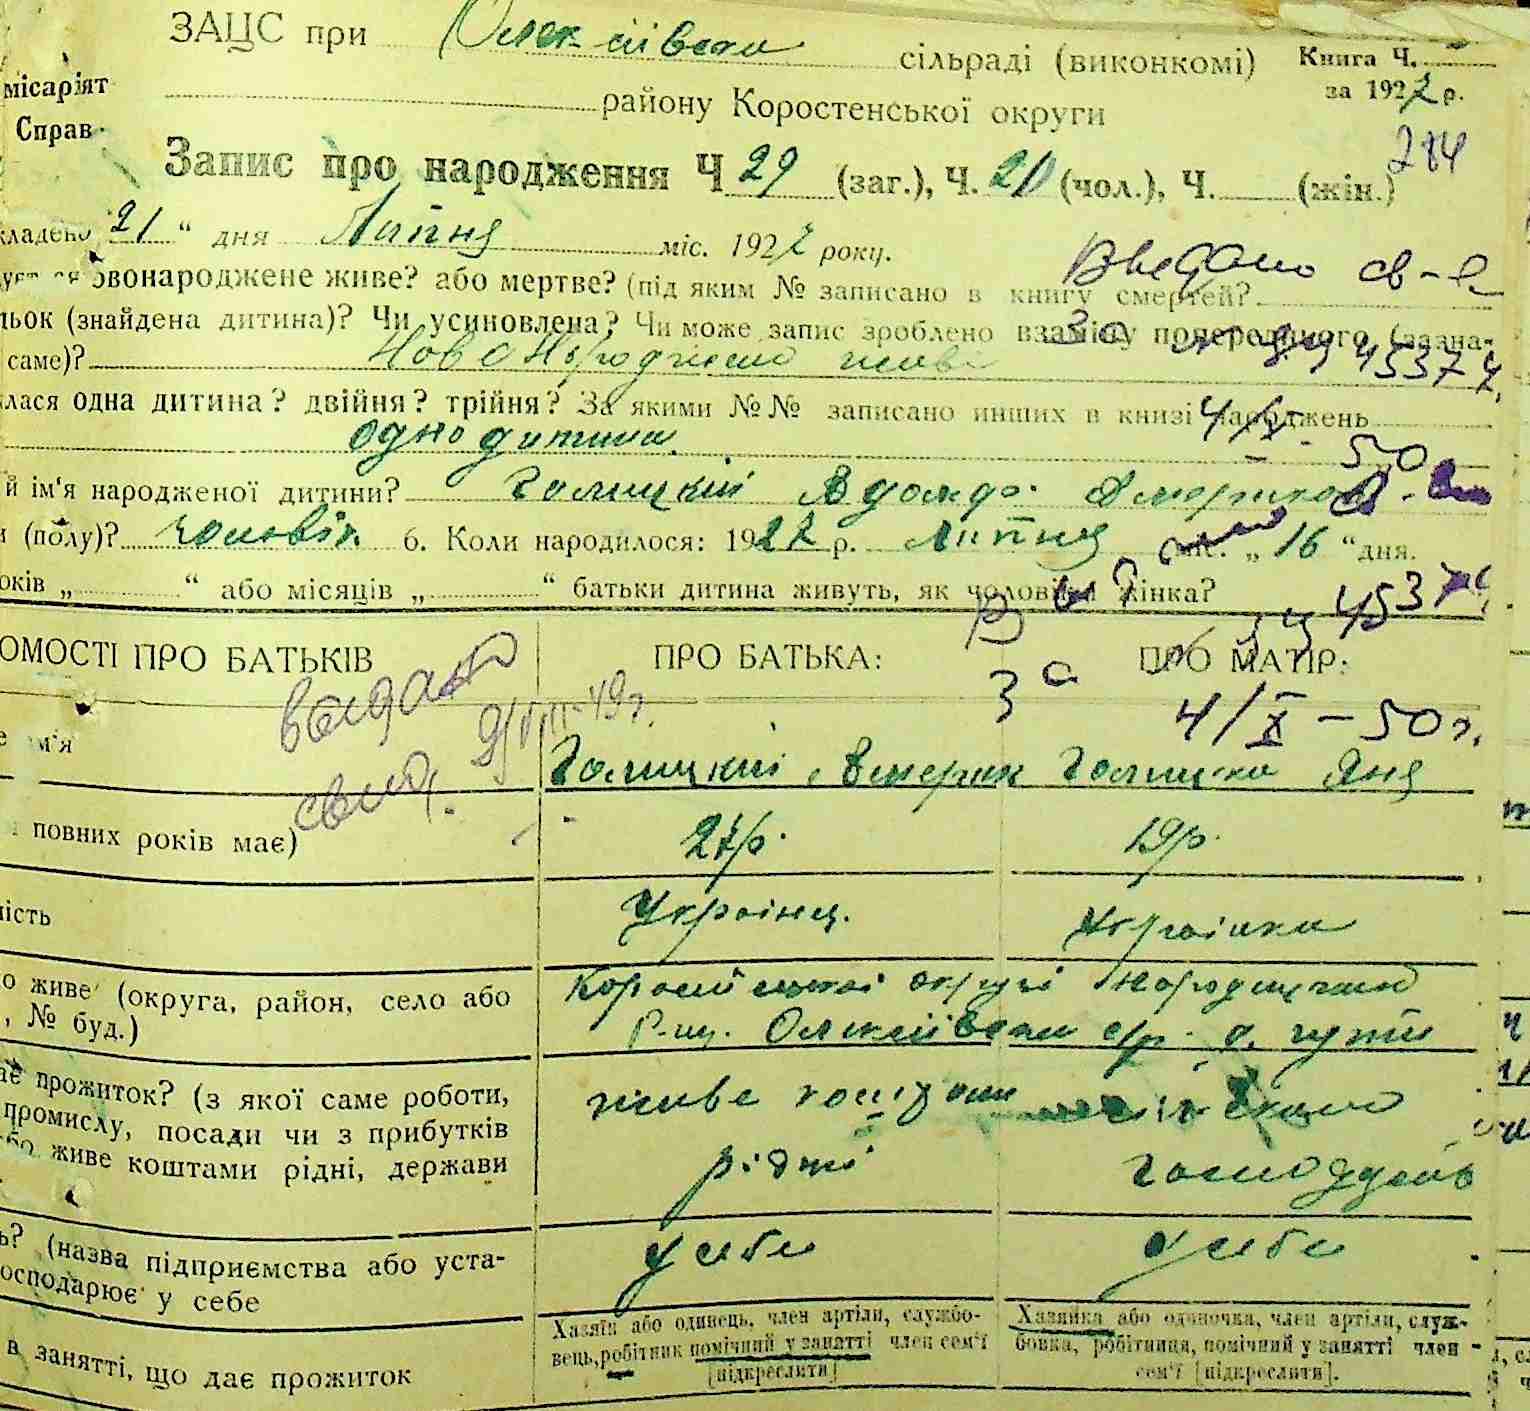 ЗАЦС при Олексіївски сільраді (виконкомі) Книга Ч.
місаріят за 1927 р.
району Коростенської округи
Справ
284
Запис про народження Ч 29 (заг.), Ч. 20 (чол.), Ч. (жін.)
кладено 21 " дня Липня міс. 1927 року.
Видано св-
вонароджене живе? або мертве? (під яким № записано в книгу смертей?
льок (знайдена дитина)? Чи усиновлена? Чи може запис зроблено взаміну попереднього (зазна-
саме)? Новонароджено живе
за 45377
лася одна дитина? двійня? трійня? За якими №№ записано инших в книзі народжень
4/X-50
одно дитина.
й ім'я народженої дитини? Галицкий Адольф Америков
и (полу)? чоловік. 6. Коли народилося: 1927 р. Липня міс. „ 16 " дня.
оків „ " або місяців „ " батьки дитина живуть, як чоловік жінка?
4537
за
4/X-50 г.
ОМОСТІ ПРО БАТЬКІВ ПРО БАТЬКА: ПРО МАТІР:
видано
свид. 9/VIII-49г.
ім'я Галицкий Америк Галицка Яня
повних років має) 27р. 19р.
ість Українц. Українка
о живе (округа, район, село або Коростенської округі Народицький
, № буд.) Р-ну. Олексіївски с/р. д. гути
ає прожиток? (з якої саме роботи, живе коштами сільським
промислу, посади чи з прибутків
або живе коштами рідні, держави рідні господар
ь? (назва підприємства або уста- у себе у себе
осподарює у себе
в занятті, що дає прожиток
Хазяїн або одинець, член артіли, службо-
вець, робітник помічний у занятті член сем'ї
[підкреслити]
Хазяйка або одиночка, член артіли, служ-
бовка, робітниця, помічний у занятті член
сем'ї [підкреслити].